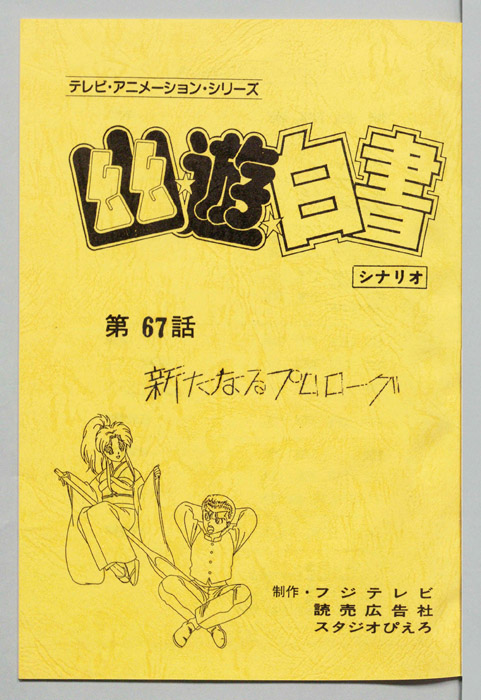 テレビ・アニメーション・シリーズ
幽★遊★白書
シナリオ
第67話
新たなるプロローグ
制作・フジテレビ
読売広告社
スタジオぴえろ